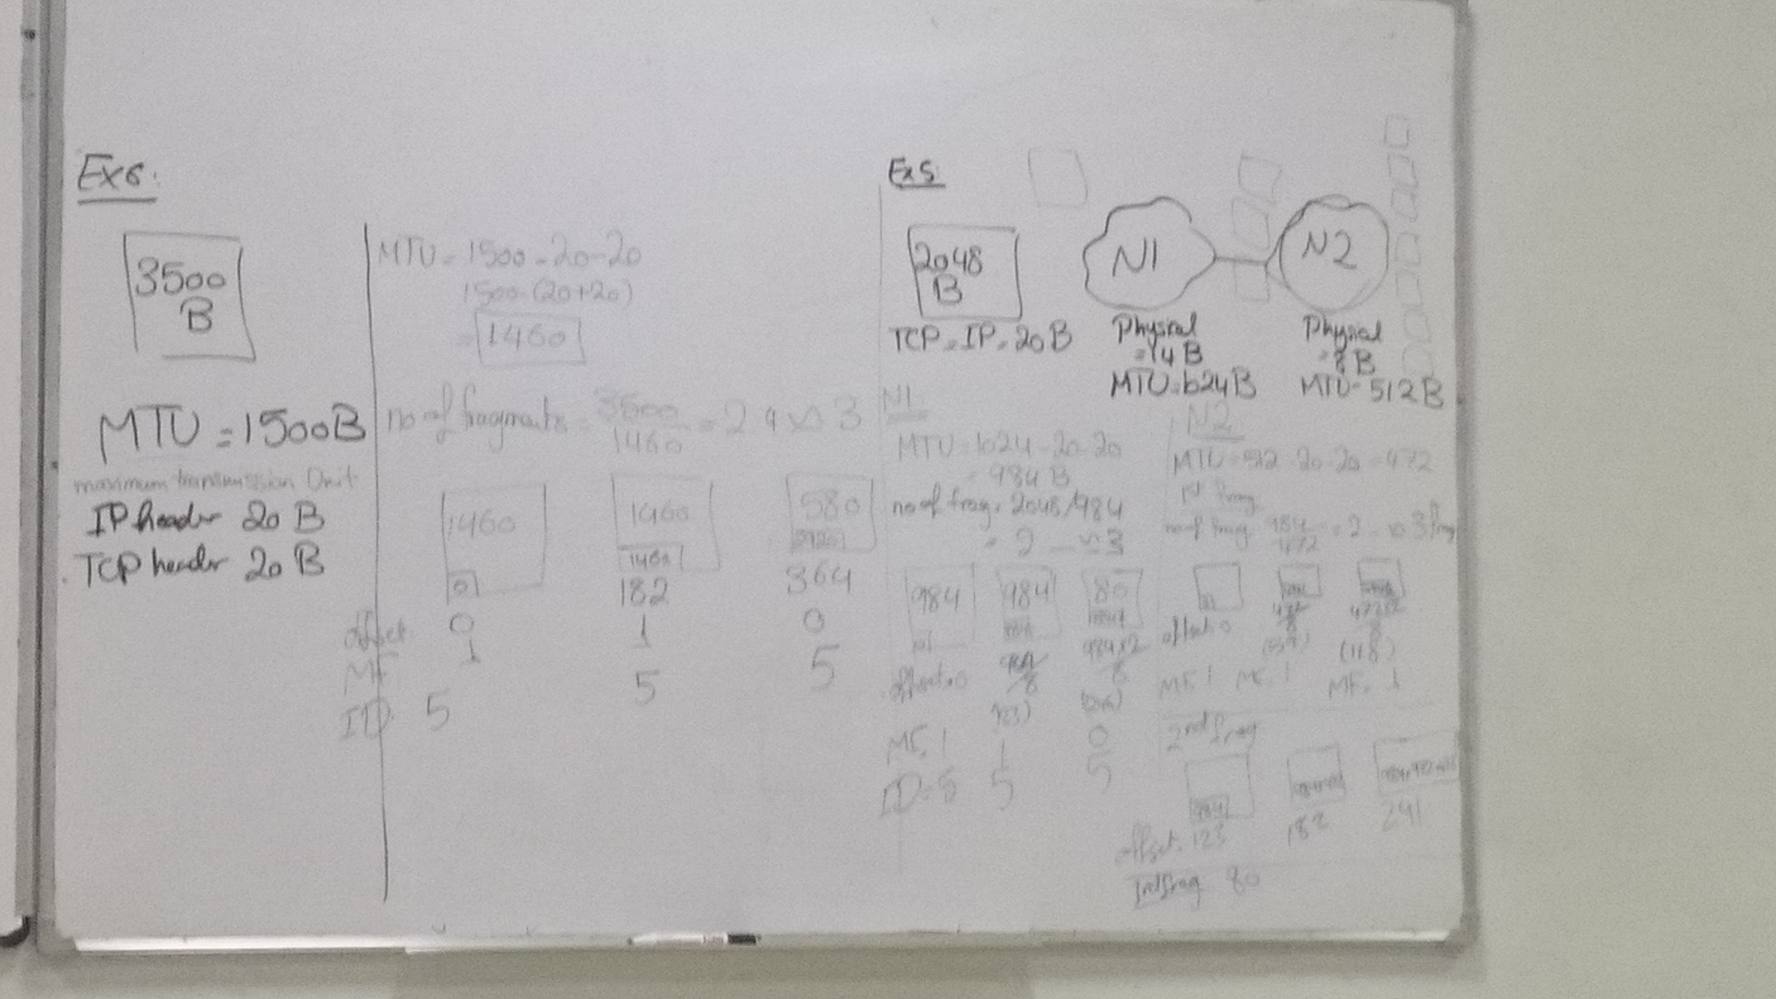 Ex6:
3500
B
MTU = 1500B
maximum transmission Unit
IP header 20 B
TCP header 20 B
MTU = 1500-20-20
1500-(20+20)
= 1460
no of fragments = 3500/1460 = 2.9 ≈ 3
1460 1460 580
0 1460 2920
182 364
offset 0 1 0
MF 1
ID 5 5 5
Ex5:
2048
B
TCP = IP = 20 B
N1
Physical
=14 B
MTU=1024B
N2
Physical
=8 B
MTU=512 B
N1
MTU=1024-20-20
= 984 B
no of frag = 2048/984
= 2 ≈ 3
984 984 80
offset=0 984/8 984x2/8
(123) (246)
MF: 1 1 0
ID=5 5 5
N2
MTU=512-20-20=472
1st frag
no of frag 984/472 = 2 3 frag
offset=0 472/8 472x2/8
(59) (118)
MF: 1 MF: 1 MF: 1
2nd frag
984
offset: 123 182 241
3rd frag 80